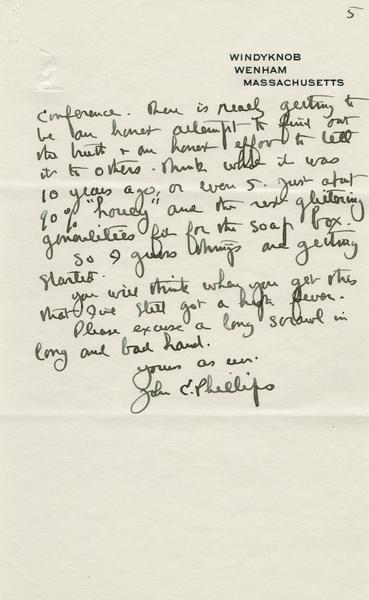 5
WINDYKNOB
WENHAM
MASSACHUSETTS
Conference. There is really getting to
be an honest attempt to find out
the truth & an honest effort to tell
it to others. Think what it was
10 years ago, or even 5. Just about
90% "hooey" and the rest glittering
generalities fit for the soap box.
So I guess things are getting
started.
You will think when you get this
that I've still got a high fever.
Please excuse a long scrawl in
long and bad hand.
Yours as ever.
John C. Phillips